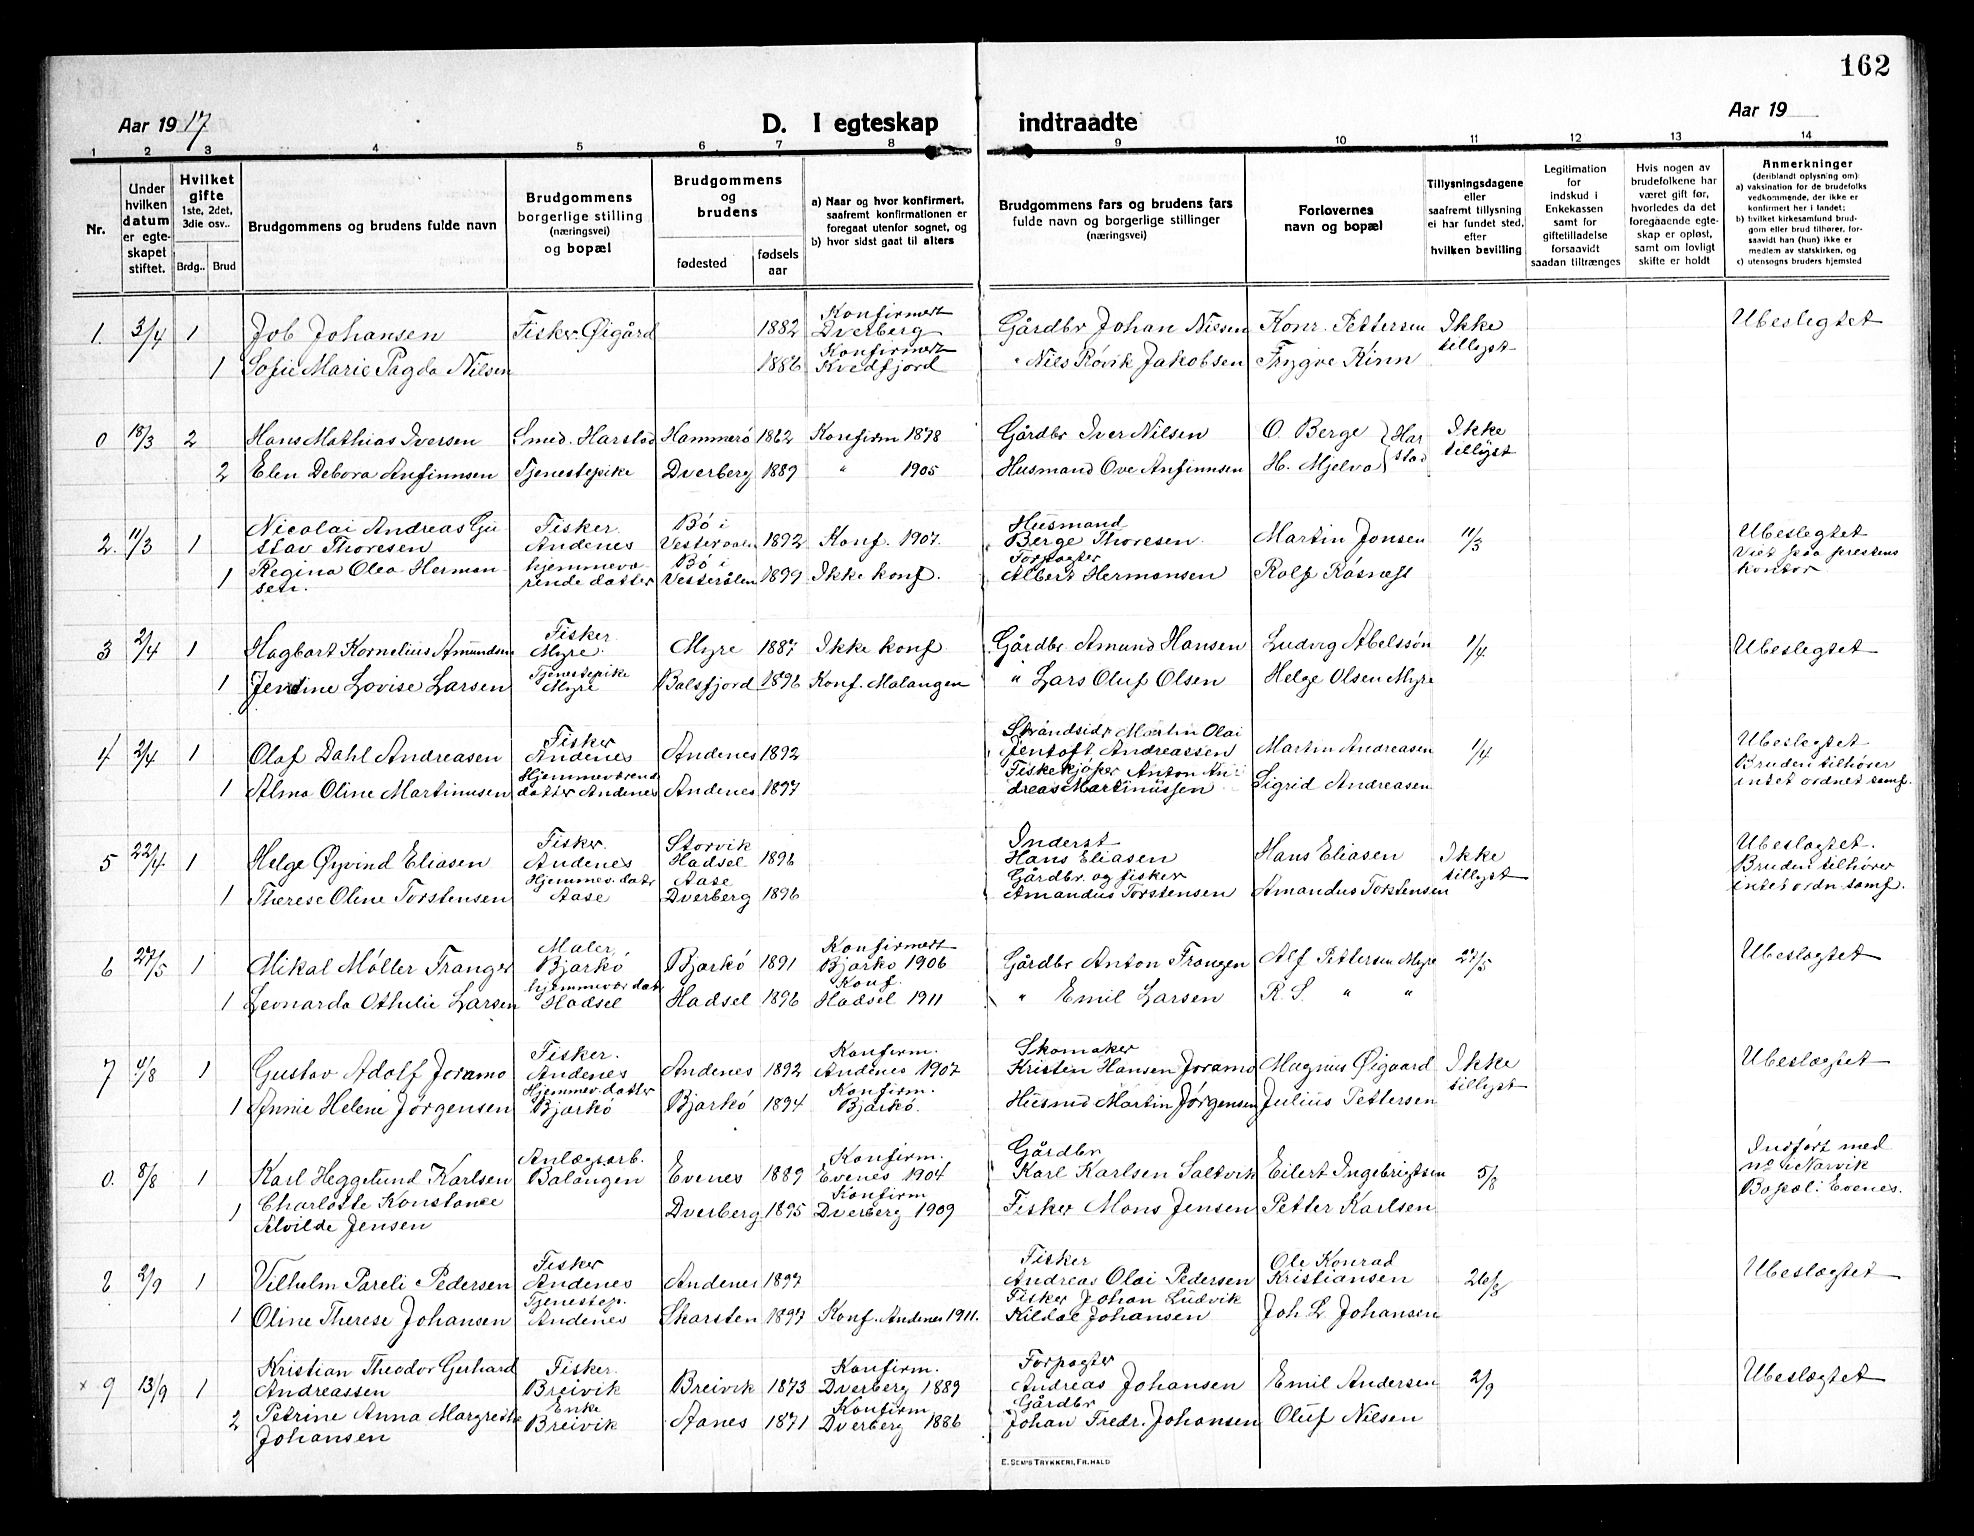 162
Aar 1917
D. I egteskap indtraadte
Aar 19
1 2 3 4 5 6 7 8 9 10 11 12 13 14
Nr.
Under hvilken datum er egteskapet stiftet.
Hvilket gifte
1ste, 2det, 3die osv..
Brdg.. Brud
Brudgommens og brudens fulde navn
Brudgommens borgerlige stilling (næringsvei) og bopæl
Brudgommens og brudens
fødested
fødsels aar
a) Naar og hvor konfirmert, saafremt konfirmationen er foregaat utenfor sognet, og
b) hvor sidst gaat til alters
Brudgommens fars og brudens fars fulde navn og borgerlige stillinger (næringsvei)
Forlovernes navn og bopæl
Tillysningsdagene eller saafremt tillysning ei har fundet sted, efter hvilken bevilling
Legitimation for indskud i Enkekassen samt for giftetilladelse forsaavidt saadan tiltrænges
Hvis nogen av brudefolkene har været gift før, hvorledes da det foregaaende egteskap er opløst, samt om lovligt skifte er holdt
Anmerkninger
(deriblandt oplysning om)
a) vaksination for de brudefolks vedkommende, der ikke er konfirmert her i landet;
b) hvilket kirkesamfund brudgom eller brud tilhører, forsaavidt han (hun) ikke er medlem av statskirken, og
c) utensogns bruders hjemsted
1. 3/4 1 Job Johansen Fisker Øigård 1882 Konfirmert Dverberg Gårdbr Johan Nilsen Konr. Pettersen Ikke tillyst Ubeslegtet
1 Sofie Marie Pagda Nilsen 1886 Konfirmert Kvedfjord " Nils Røvik Jakobsen Trygve Rinn
0 18/3 2 Hans Mathias Iversen Smed. Harstad Hammerø 1862 Konfirm 1878 Gårdbr Iver Nilsen O. Berge } Harstad Ikke tillyst
2 Elen Debora Anfinnsen Tjenestepike Dverberg 1889 " 1905 Husmand Ove Anfinnsen H. Mjelva
2. 11/3 1 Nicolai Andreas Gustav Thoresen Fisker Andenes Bø i Vesteraalen 1892 Konf. 1907. Husmand Berge Thoresen Martin Jonsen 11/3 Ubeslegtet Viet paa prestens kontor
1 Regina Olea Hermansen. hjemmeværende datter Bø i Vesterålen 1899 Ikke konf. Forpagter Albert Hermansen Rolf Råsnæst
3 2/4 1 Hagbart Kornelius Amundsen Fisker Myre. Myre 1887 Ikke konf Gårdbr Amund Hansen Ludvig Abelssøn 1/4 Ubeslegtet
1 Jentine Lovise Larsen Tjenestepike Myre Balsfjord 1896 Konf. Malangen " Lars Oluf Olsen Helge Olsen Myre
4 2/4 1 Olaf Dahl Andreasen Fisker Andenes Andenes 1892 Strandsidr Martin Olai Jentoft Andreassen Martin Andreasen 1/4 Ubeslegtet Bruden tilhører intet ordnet samf.
1 Alma Oline Martinusen Hjemmeværend datter Andenes Andenes 1897 Fiskekjøper Anton Andreas Martinussen Sigrid Andreasen
5 22/4 1 Helge Øyvind Eliasen Fisker Andenes Storvik Hadsel 1896 Inderst Hans Eliasen Hans Eliasen Ikke tillyst Ubeslægtet. Bruden tilhører intet ordn samf.
1 Therese Oline Torstensen Hjemmev. datr Aase Aase Dverberg 1896 Gårdbr og fisker Amandus Torstensen Amandus Torstensen
6 27/5 1 Mikal Møller Franger Maler Bjarkø Bjarkø 1891 Konfirmert Bjarkø 1906 Gårdbr Anton Frangen Alf Pettersen Myre 27/5 Ubeslægtet
1 Leonarda Othilie Larsen hjemmevær dat Hadsel Hadsel 1896 Konf. Hadsel 1911 " Emil Larsen R. S. " "
7 11/8 1 Gustav Adolf Joramo Fisker. Andenes Andenes 1892 Konfirm. Andenes 1907 Skomaker Kristen Hansen Joramo Magnus Øigaard Ikke tillyst Ubeslægtet
1 Annie Helene Jørgensen Hjemmev. datter Bjarkø Bjarkø 1894 Konfirm. Bjarkø. Husmd Martin Jørgensen Julius Pettersen
0. 8/8 1 Karl Heggelund Karlsen Anlægsarb. Balangen Evenes 1889 Konfirm. Evenes 1904 Gårdbr Karl Karlsen Saltvik Eilert Ingebrigtsen 5/8 Indført med nº i Narvik Bopæl: Evenes.
1 Charlotte Konstance Alvilde Jensen Dverberg 1895 Konfirm Dverberg 1909 Fisker Mons Jensen Petter Karlsen
8 2/9 1 Vilhelm Pareli Pedersen Fisker Andenes Andenes 1897 Fisker Andreas Olai Pedersen Ole Konrad Kristiansen 26/8 Ubeslægtet
1 Oline Therese Johansen Tjenestep. Andenes Skarsten 1897 Konf. Andenes 1911. Fisker Johan Ludvik Kildal Johansen Joh L. Johansen
x 9 13/9 1 Kristian Theodor Gerhard Andreassen Fisker. Breivik Breivik 1873 Konfirm. Dverberg 1889 Forpagter Andreas Johansen Emil Andersen 2/9 Ubeslægtet
2 Petrine Anna Margrethe Johansen Enke Breivik Aanes 1871 Konfirm Dverberg 1886 Gårdbr Johan Fredr. Johansen Oluf Nilsen
E. SEM'S TRYKKERI, FR.HALD